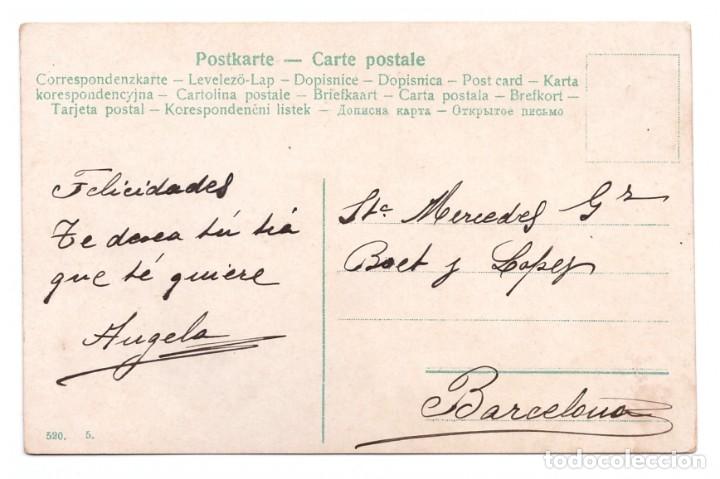 Postkarte — Carte postale
Correspondenzkarte – Levelező-Lap – Dopisnice – Dopisnica – Post card – Karta
korespondencyjna – Cartolina postale – Briefkaart – Carta postala – Brefkort –
Tarjeta postal – Korespondenční listek – Дописна карта – Открытое письмо
Felicidades
Te desea tú tiá
que té quiere
Angela
Sta Mercedes Gz
Boet y Lopez
Barcelona
520. 5.
todocoleccion
todocoleccion.net